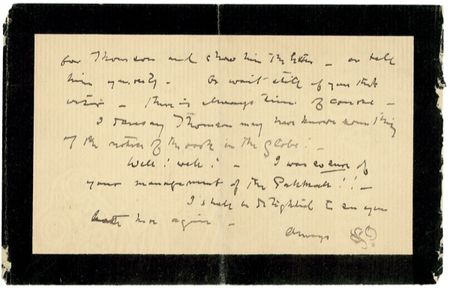 for Thomson and show him the letter – or tell
him yourself – Or wait still if you think
wiser – there is always time of course –
I daresay Thomson may have known something
of the notice of the book in the Globe! –
Well! well! – I was so sure of
your management of the Pall Mall!! –
I shall be delighted to see you
here again –
Always